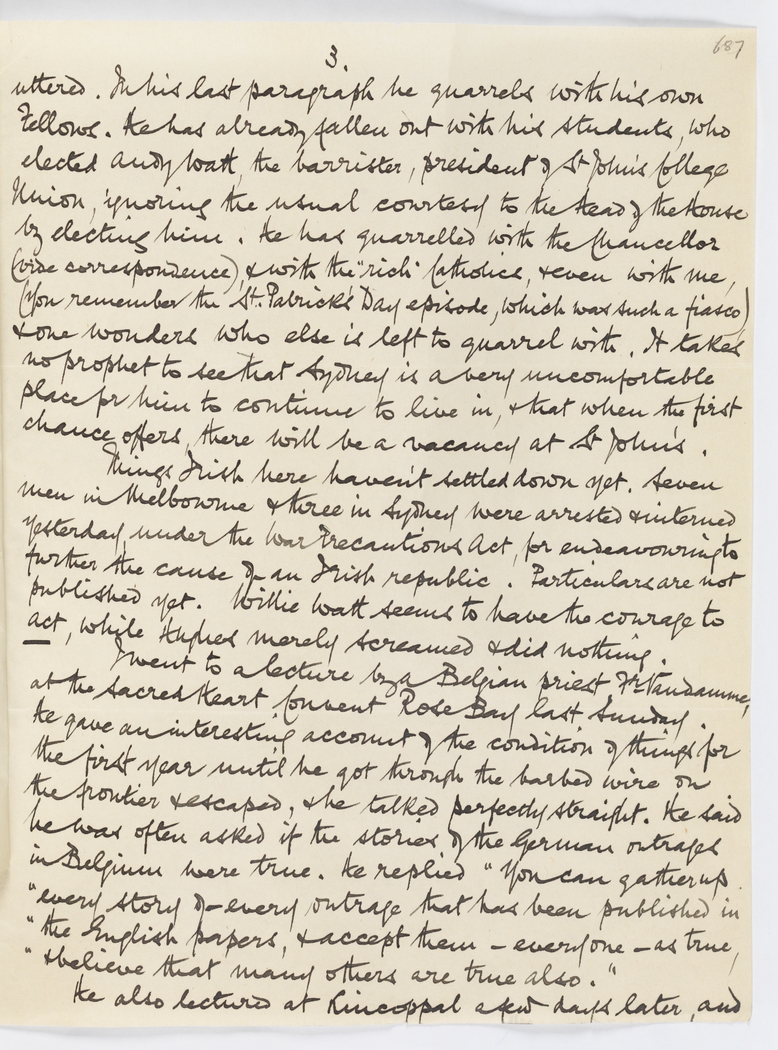 687
3.
uttered. In his last paragraph he quarrels with his own
Fellows. He has already fallen out with his students, who
elected Andy Watt, the barrister, president of St John's College
Union, ignoring the usual courtesy to the Head of the House
by electing him. He has quarrelled with the Chancellor
(vide correspondence), & with the "rich" Catholics, & even with me,
(You remember the St. Patrick's Day episode, which was such a fiasco)
& one wonders who else is left to quarrel with. It takes
no prophet to see that Sydney is a very uncomfortable
place for him to continue to live in, & that when the first
chance offers, there will be a vacancy at St John's.
Things Irish here haven't settled down yet. Seven
men in Melbourne & three in Sydney were arrested & interned
yesterday, under the War Precautions Act, for endeavouring to
further the cause of an Irish republic. Particulars are not
published yet. Willie Watt seems to have the courage to
act, while Hughes merely screamed & did nothing.
I went to a lecture by a Belgian priest, Fr Vandamme,
at the Sacred Heart Convent Rose Bay last Sunday.
He gave an interesting account of the condition of things for
the first year until he got through the barbed wire on
the frontier & escaped, & he talked perfectly straight. He said
he was often asked if the stories of the German outrages
in Belgium were true. He replied "You can gather up
"every story of every outrage that has been published in
"the English papers, & accept them – everyone – as true,
" & believe that many others are true also."
He also lectured at Kincoppal a few days later, and